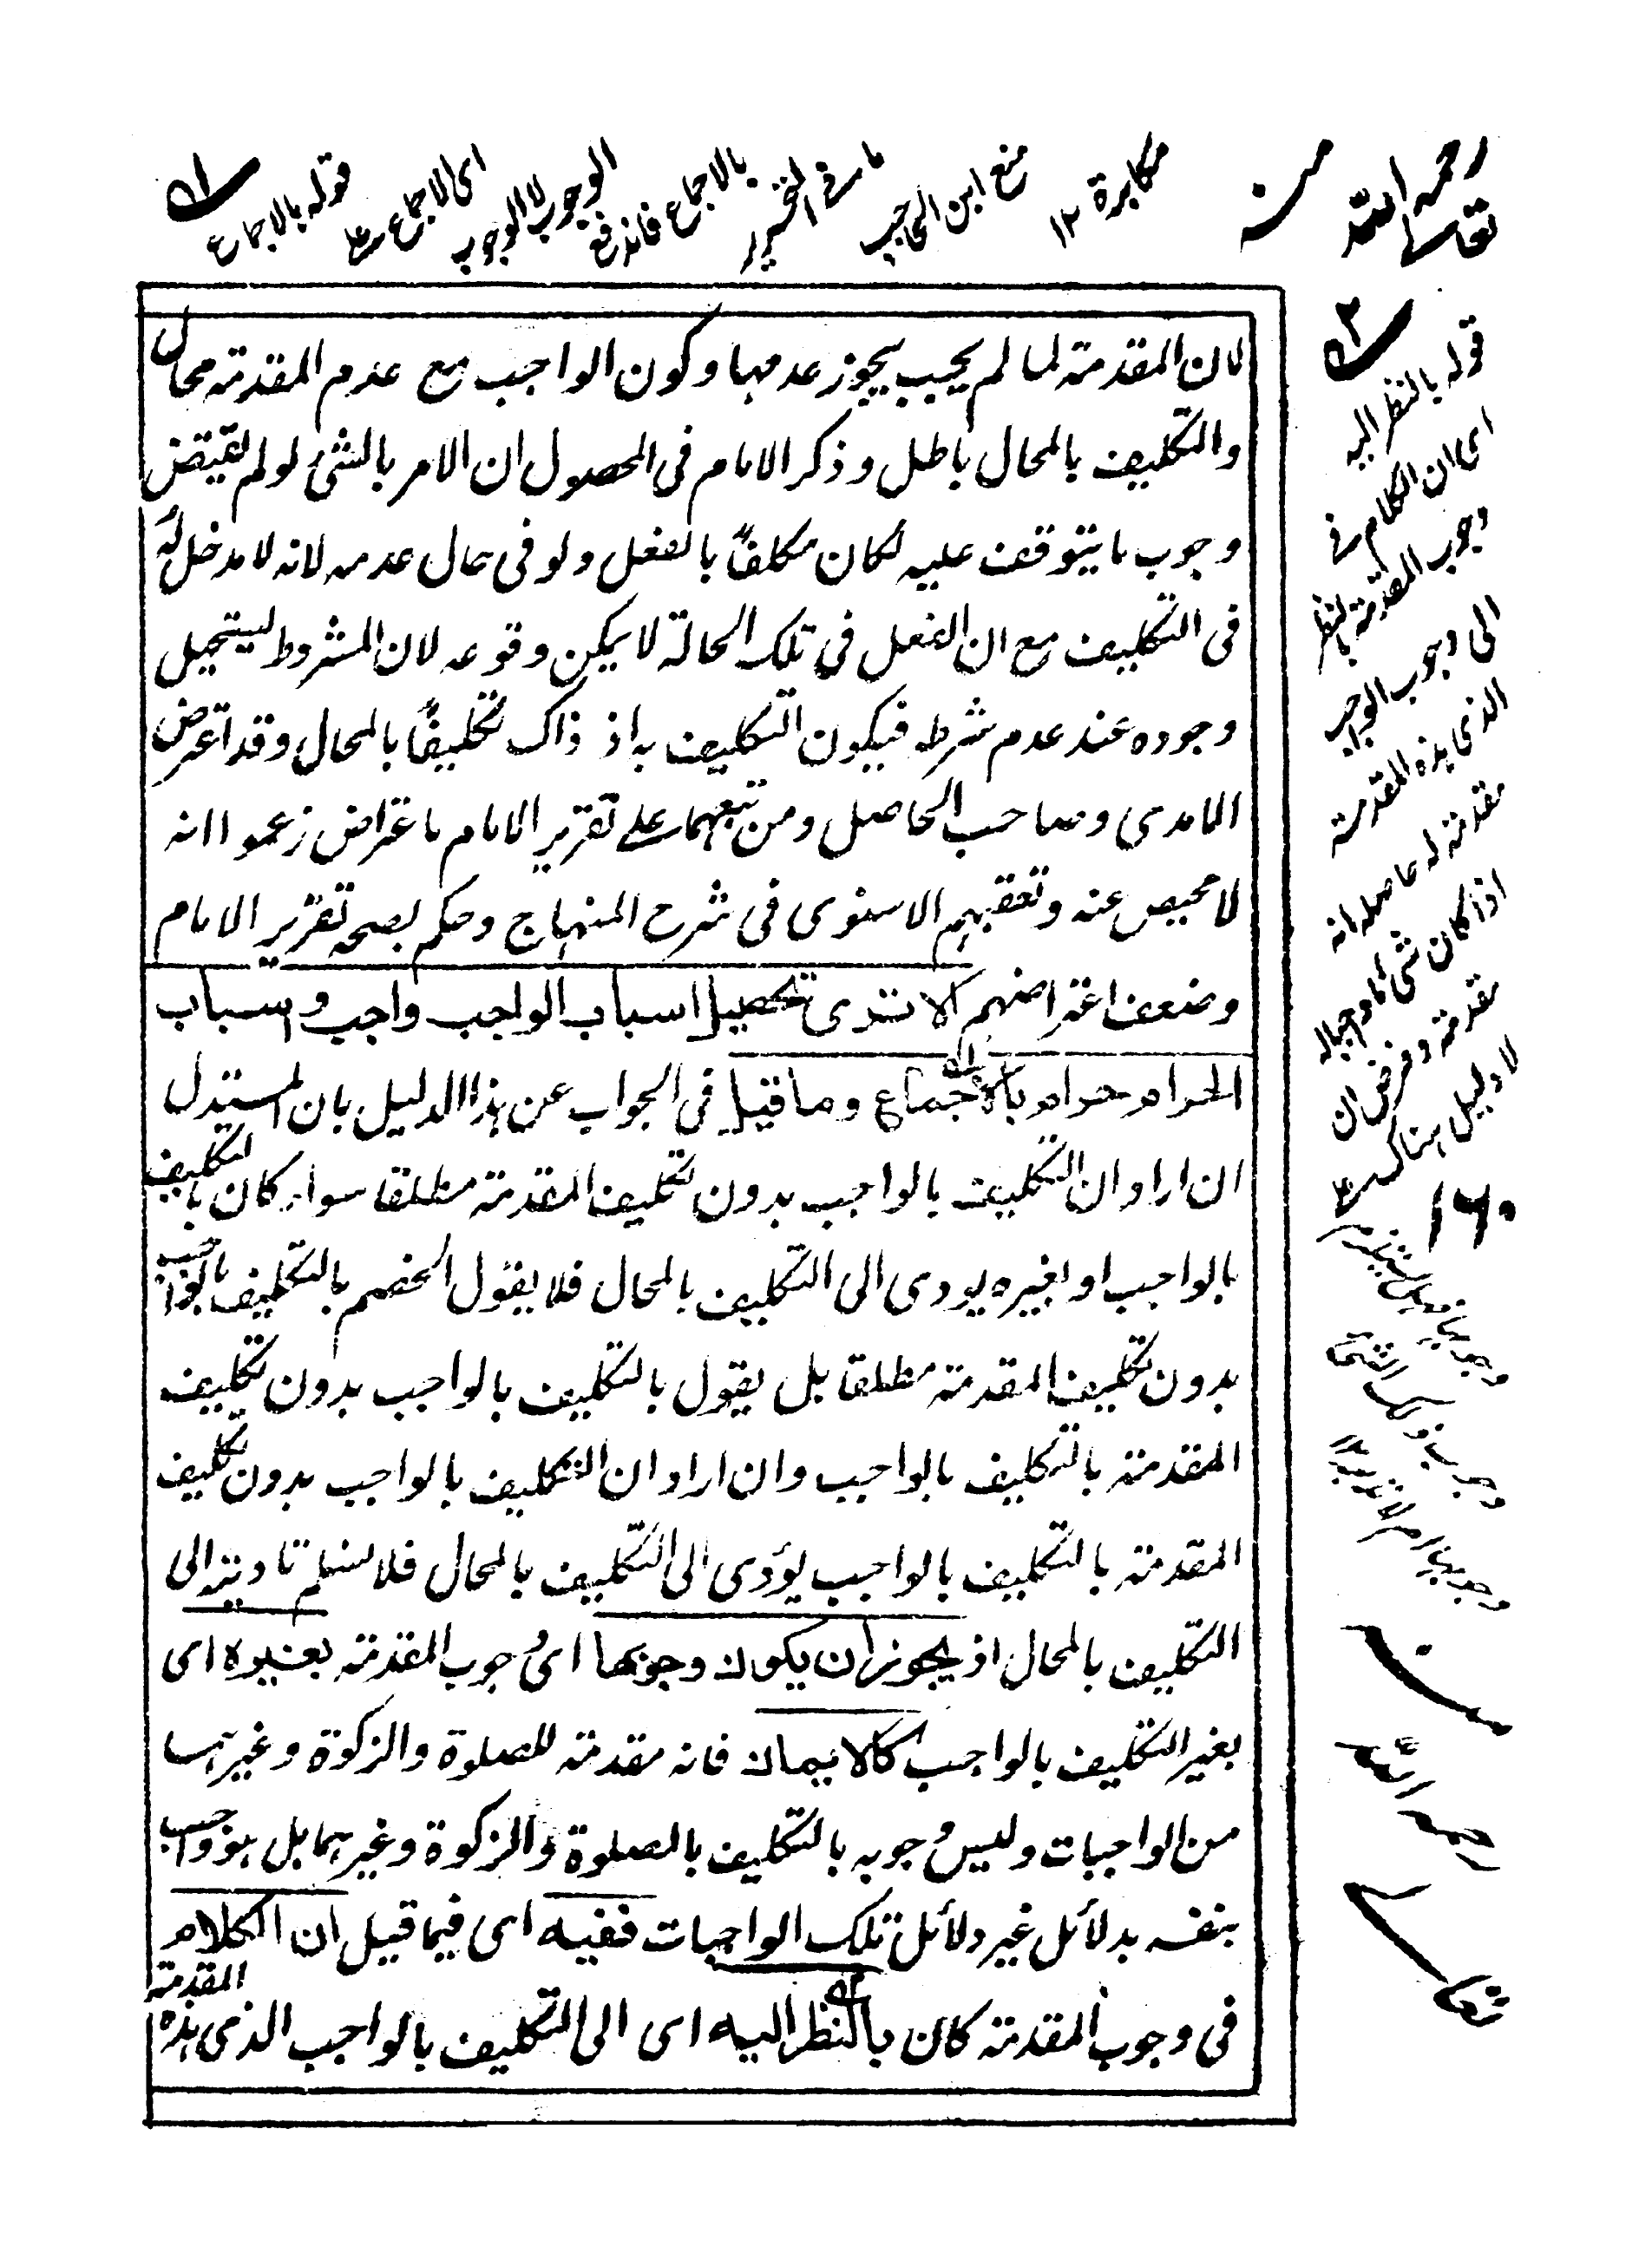 قوله بالاجماع
اى الاجماع على
الوجوب لا الوجوب
بالاجماع فاندفع
ما فى التحرير
منع ابن الحاجب
مكابرة ١٢
منه
رحمه الله
تعالى
لان المقدمة لما لم يجب يجوز عدمها وكون الواجب مع عدم المقدمة محال
والتكليف بالمحال باطل وذكر الامام فى المحصول ان الامر بالشئ لو لم يقتض
وجوب ما يتوقف عليه لكان مكلفًا بالفعل ولو فى حال عدمه لانه لا مدخل له
فى التكليف مع ان الفعل فى تلك الحالة لا يمكن وقوعه لان المشروط يستحيل
وجوده عند عدم شرطه فيكون التكليف به اذ ذاك تكليفًا بالمحال وقد اعترض
الآمدى وصاحب الحاصل ومن تبعهما على تقرير الامام باعتراض زعموا انه
لا محيص عنه وتعقبهم الاسنوى فى شرح المنهاج وحكم بصحة تقرير الامام
وضعف اعتراضهم الا ترى تحصيل اسباب الواجب واجب واسباب
الحرام حرام بالاجماع وما قيل فى الجواب عن هذا الدليل بان المستدل
ان اراد ان التكليف بالواجب بدون تكليف المقدمة مطلقا سواء كان بالتكليف
بالواجب او بغيره يودى الى التكليف بالمحال فلا يقول الخصم بالتكليف بالواجب
بدون تكليف المقدمة مطلقا بل يقول بالتكليف بالواجب بدون تكليف
المقدمة بالتكليف بالواجب وان اراد ان التكليف بالواجب بدون تكليف
المقدمة بالتكليف بالواجب يؤدى الى التكليف بالمحال فلا نسلم تاديته الى
التكليف بالمحال اذ يجوز ان يكون وجوبها اى وجوب المقدمة بغيره اى
بغير التكليف بالواجب كالايمان فانه مقدمة للصلوة والزكوة وغيرهما
من الواجبات وليس وجوبه بالتكليف بالصلوة والزكوة وغيرهما بل هو واجب
بنفسه بدلائل غير دلائل تلك الواجبات ففيه اى فيما قيل ان الكلام
فى وجوب المقدمة كان بالنظر اليه اى الى التكليف بالواجب الذى هذه المقدمة
قوله بالنظر اليه
اى ان الكلام فى
وجوب المقدمة بالنظر
الى وجوب الواجب
الذى هذه المقدمة
مقدمة له حاصله انه
اذا كان شئ ما وجب له
مقدمة وفرض ان
لا دليل هناك على
١٦٠
منه
رحمه الله
تعالى